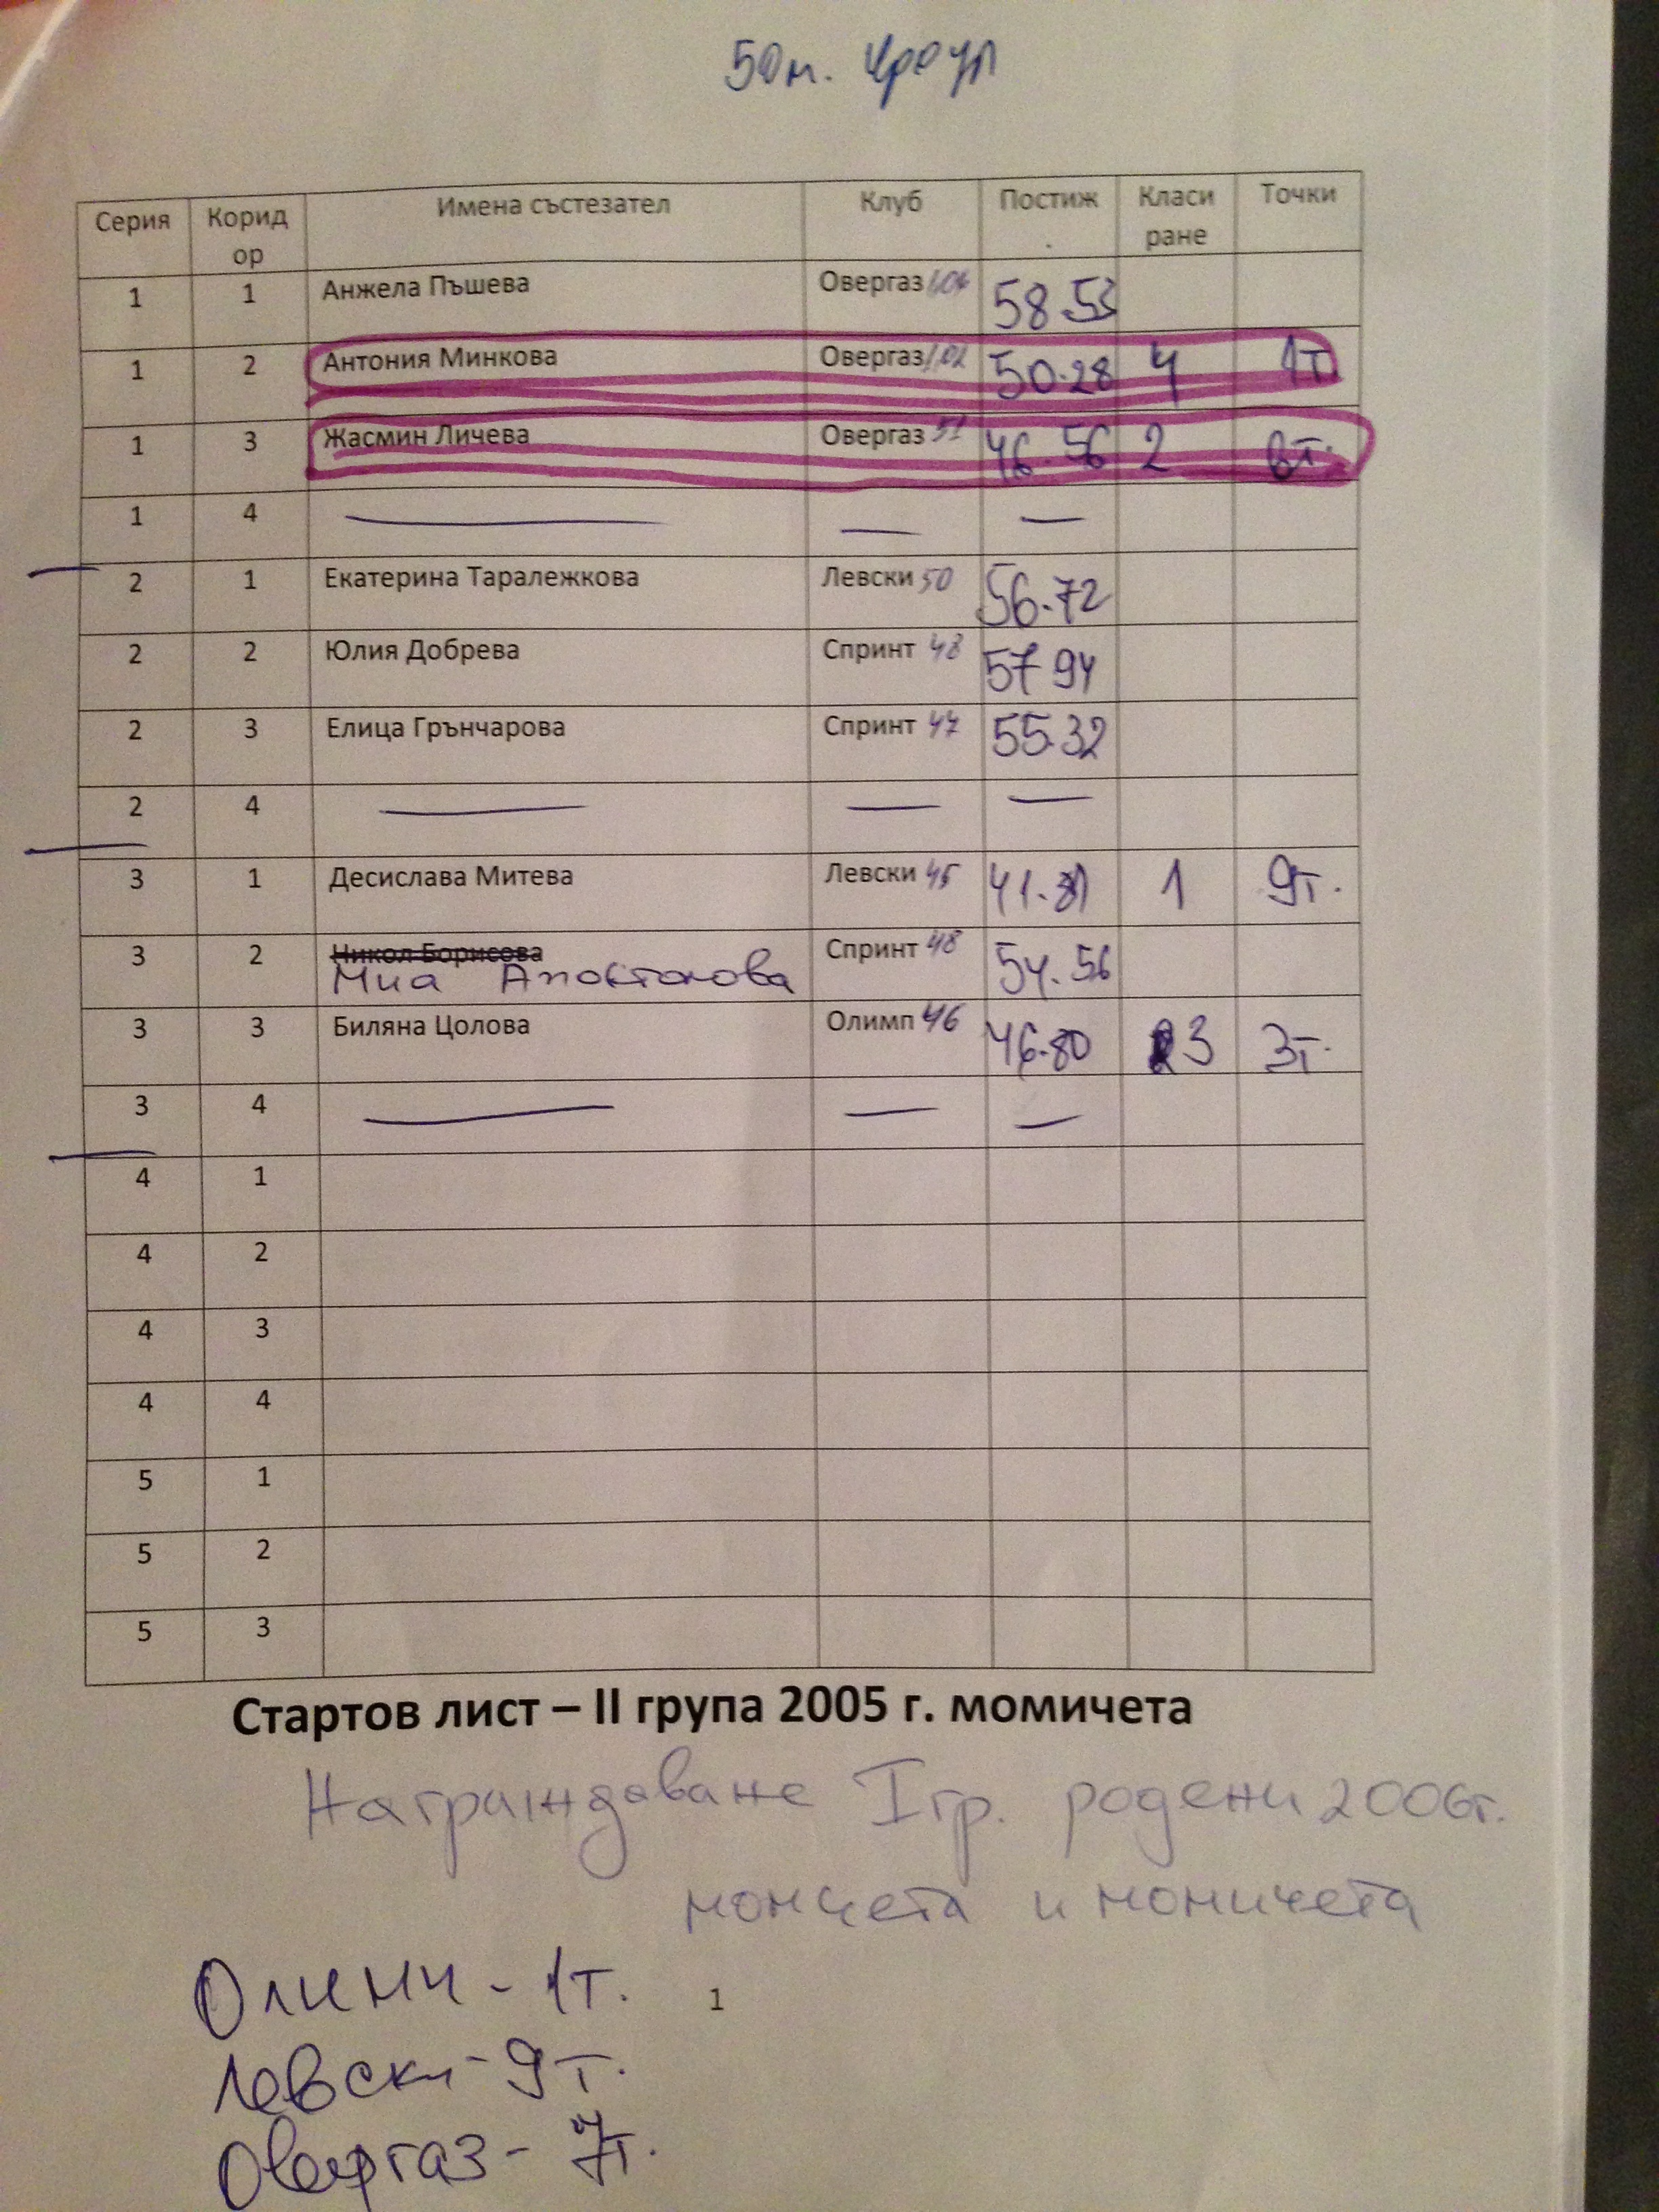 50м. Кроул
Серия Коридор Имена състезател Клуб Постиж. Класиране Точки
1 1 Анжела Пъшева Овергаз 58.53
1 2 Антония Минкова Овергаз 1.02 50.28 4 1т.
1 3 Жасмин Личева Овергаз 51 46.56 2 6т.
1 4 — — —
2 1 Екатерина Таралежкова Левски 50 56.72
2 2 Юлия Добрева Спринт 48 57 94
2 3 Елица Грънчарова Спринт 47 55.32
2 4 — — —
3 1 Десислава Митева Левски 45 41.81 1 9т.
3 2 Никол Борисова Спринт 48 54.56
Миа Апостолова
3 3 Биляна Цолова Олимп 46 46.80 3 3т.
3 4 — — —
4 1
4 2
4 3
4 4
5 1
5 2
5 3
Стартов лист – II група 2005 г. момичета
Награждаване I гр. родени 2006г.
момчета и момичета
Олимп - 1т.
1
Левски - 9т.
Овергаз - 7т.